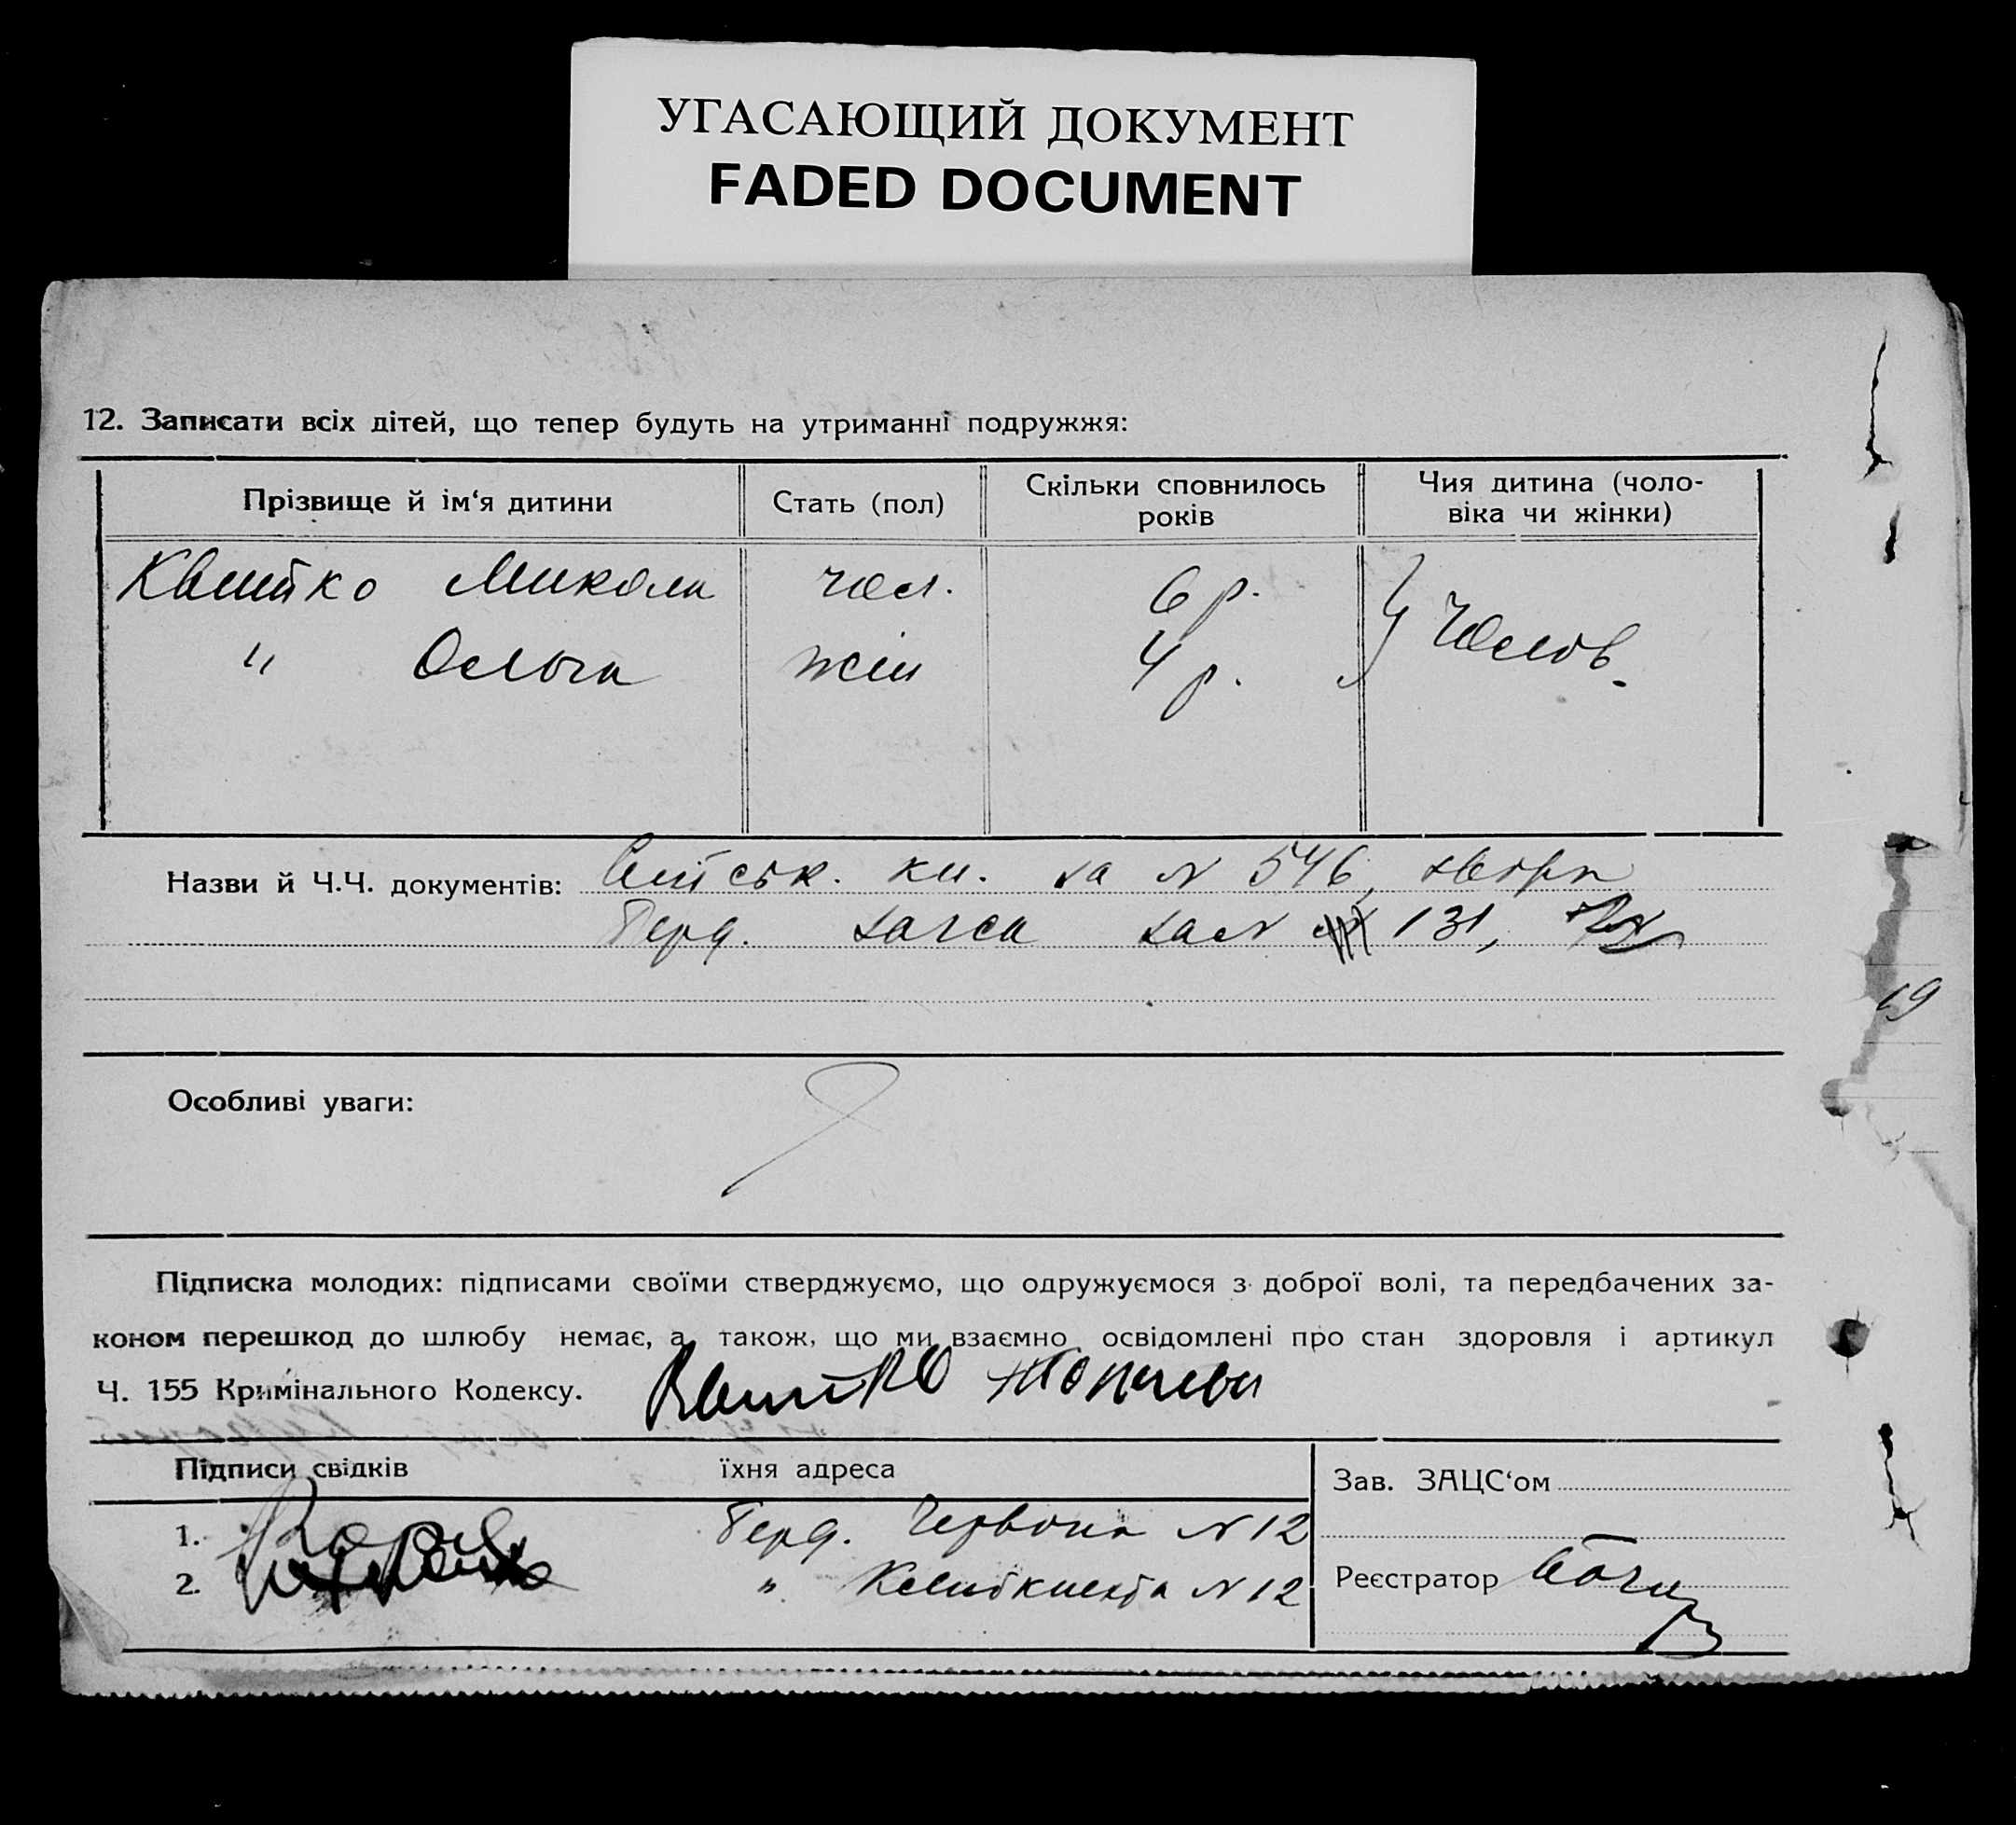 УГАСАЮЩИЙ ДОКУМЕНТ
FADED DOCUMENT
12. Записати всіх дітей, що тепер будуть на утриманні подружжя:
Прізвище й ім‘я дитини Стать (пол) Скільки сповнилось років Чия дитина (чоловіка чи жінки)
Квитко Микола чол. 6 р. } Чолов.
" Ольга жін 4 р.
Назви й Ч.Ч. документів: кн. за № 546,
Берд. загса за № 131,
19
Особливі уваги:
Підписка молодих: підписами своїми стверджуємо, що одружуємося з доброї волі, та передбачених за-
коном перешкод до шлюбу немає, а також, що ми взаємно освідомлені про стан здоровля і артикул
Ч. 155 Кримінального Кодексу. Квитко
Підписи свідків їхня адреса Зав. ЗАЦС‘ом
1. Берд. Червона № 12
2. " № 12 Реєстратор